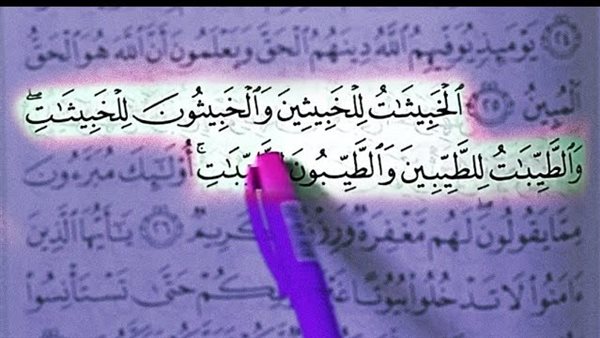 يَوْمَئِذٍ يُوَفِّيهِمُ ٱللَّهُ دِينَهُمُ ٱلْحَقَّ وَيَعْلَمُونَ أَنَّ ٱللَّهَ هُوَ ٱلْحَقُّ
ٱلْمُبِينُ ٢٥ ٱلْخَبِيثَٰتُ لِلْخَبِيثِينَ وَٱلْخَبِيثُونَ لِلْخَبِيثَٰتِۖ
وَٱلطَّيِّبَٰتُ لِلطَّيِّبِينَ وَٱلطَّيِّبُونَ أُو۟لَٰٓئِكَ مُبَرَّءُونَ
مِمَّا يَقُولُونَۖ لَهُم مَّغْفِرَةٌ وَرِزْقٌ ٢٦ يَٰٓأَيُّهَا ٱلَّذِينَ
ءَامَنُوا۟ لَا تَدْخُلُوا۟ بُيُوتًا حَتَّىٰ تَسْتَأْنِسُوا۟